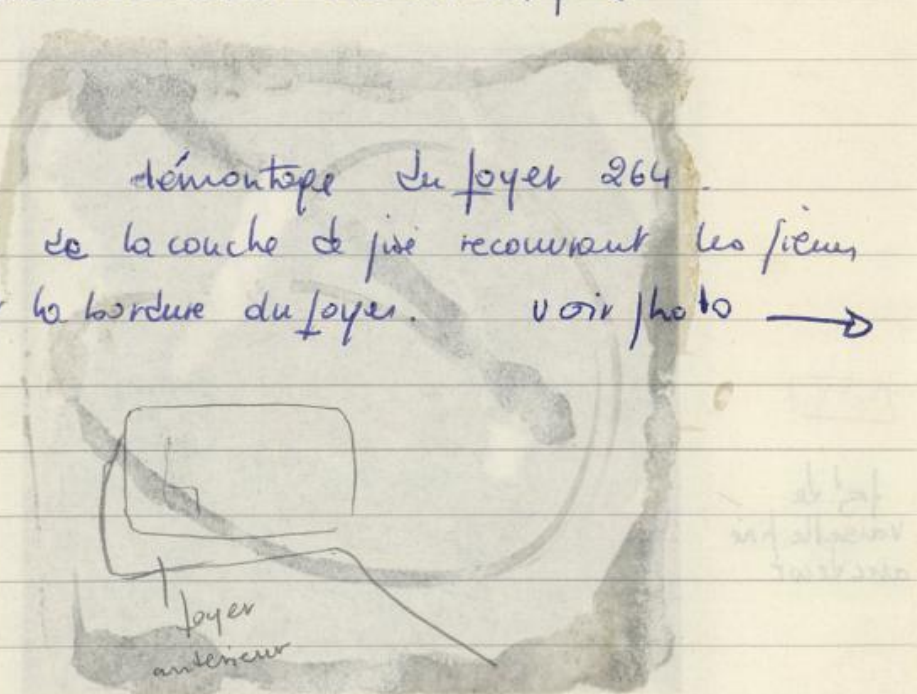 démontage du foyer 264.
de la couche de pisé recouvrant les pierres
la bordure du foyer. voir photo
foyer
antérieur